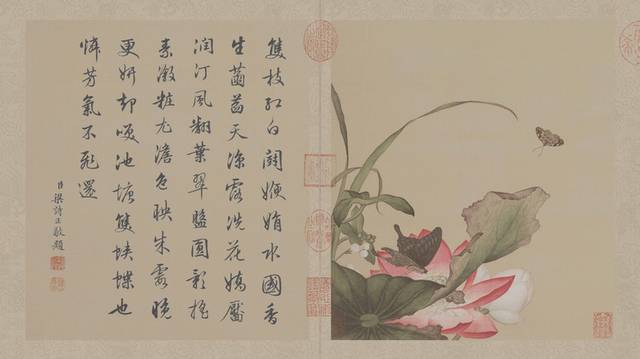 雙枝紅白鬪嬋娟水國香
生菡萏天涼露洗花嬌靨
潤汀風翻葉翠盤圓影搖
素瀲粧尤澹色映朱霞曉
更妍却咲池塘雙蛺蝶也
憐芳氣不飛還
臣梁詩正敬題